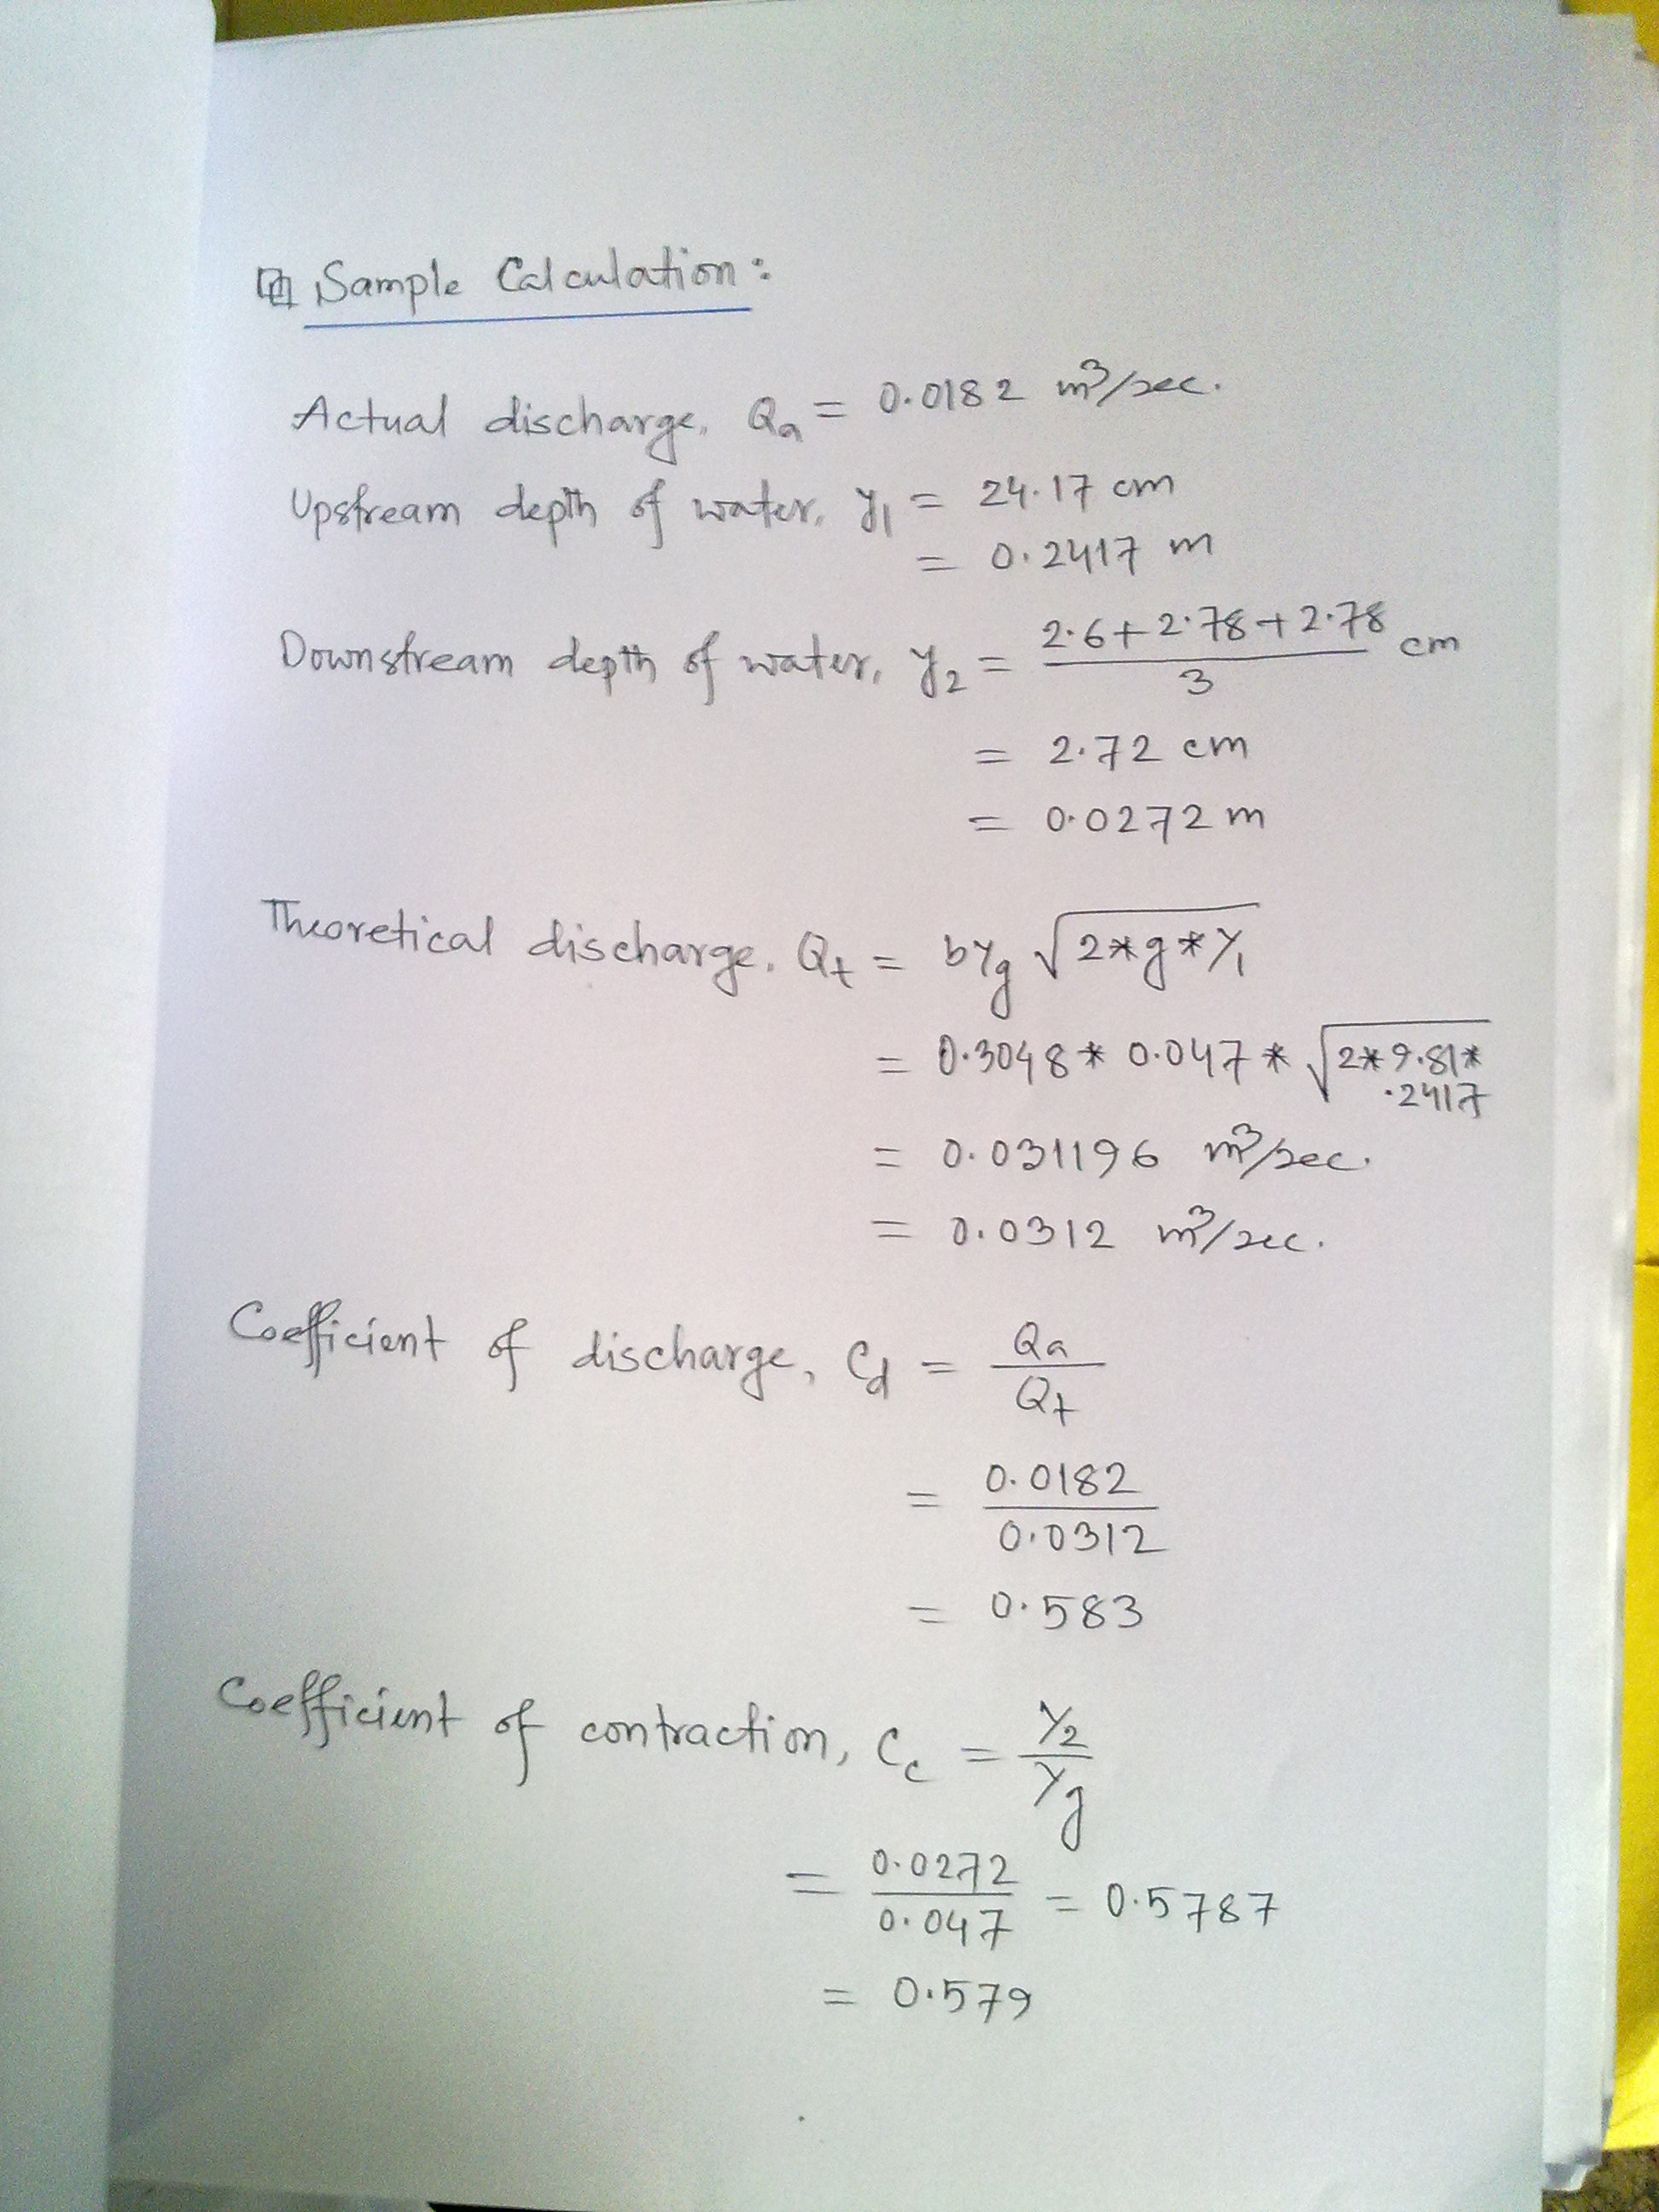 Sample Calculation:
Actual discharge, Qa = 0.0182 m³/sec.
Upstream depth of water, y₁ = 24.17 cm
= 0.2417 m
Downstream depth of water, y₂ = (2.6+2.78+2.78)/3 cm
= 2.72 cm
= 0.0272 m
Theoretical discharge, Qt = byg √(2*g*y₁)
= 0.3048 * 0.047 * √(2*9.81*.2417)
= 0.031196 m³/sec.
= 0.0312 m³/sec.
Coefficient of discharge, Cd = Qa/Qt
= 0.0182/0.0312
= 0.583
Coefficient of contraction, Cc = y₂/yg
= 0.0272/0.047 = 0.5787
= 0.579